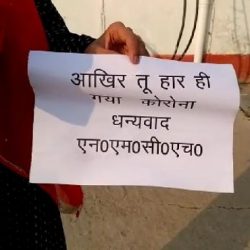 आखिर तू हार ही
गया कोरोना
धन्यवाद
एन0एम0सी0एच0